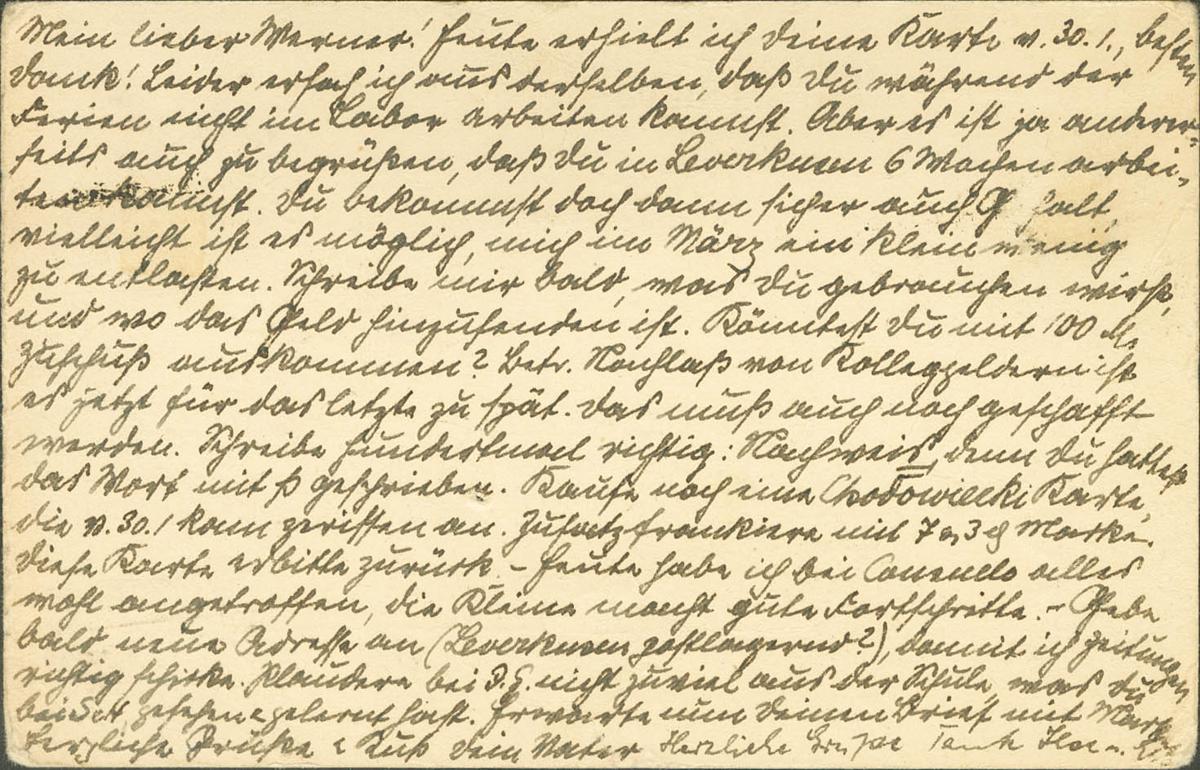 Mein lieber Werner! Heute erhielt ich deine Karte v. 30. 1., besten
Dank! Leider ersah ich aus derselben, daß du während der
Ferien nicht im Labor arbeiten kannst. Aber es ist ja anderer-
seits auch zu begrüßen, daß du in Leverkusen 6 Wochen arbei-
ten kannst. Du bekommst doch dann sicher auch G halt,
vielleicht ist es möglich, mich im März ein klein wenig
zu entlasten. Schreibe mir bald, was du gebrauchen wirst,
und wo das Geld hinzusenden ist. Könntest du mit 100 M.
Zuschuß auskommen? Betr. Nachlaß von Kolleggeldern ist
es jetzt für das letzte zu spät. Das muß auch noch geschafft
werden. Schreibe hundertmal richtig: Nachweis, denn du hattest
das Wort mit ß geschrieben. Kaufe noch eine Chodowiecki Karte,
die v. 30. 1 kam zerissen an. Zusatzfrankiere mit 3 Marke.
Diese Karte erbitte zurück - Heute habe ich bei alles
wohl angetroffen, die Kleine macht gute Fortschritte. - Gebe
bald neue Adresse an (Leverkusen postlagernd?), damit ich Zeitungen
richtig schicke. Plaudere bei nicht zuviel aus der Schule, was du
bei gesehen & gelernt hast. Erwarte nun deinen Brief mit
Herzliche Grüße & Kuß dein Vater Herzliche Grüße Tante